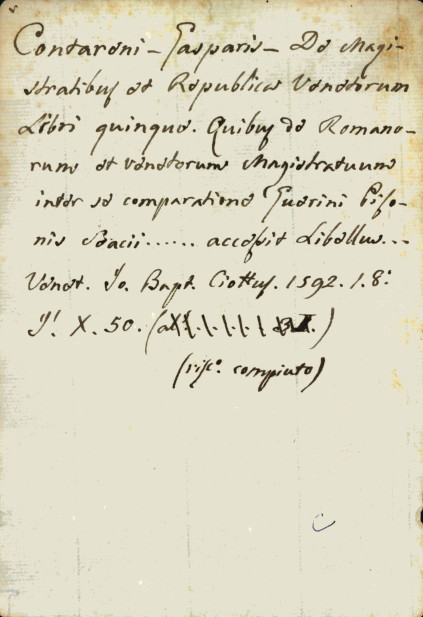 Contareni - Gasparis - De Magi-
stratibus et Republica Venetorum
Libri quinque. Quibus de Romano-
rum et venetorum Magistratuum
inter se comparatione Guerini Piso-
nis Soacii...... accessit Libellus...
Venet. Jo. Bapt. Ciottus. 1592. 1. 8.
X. 50.
(risc.o compiuto)